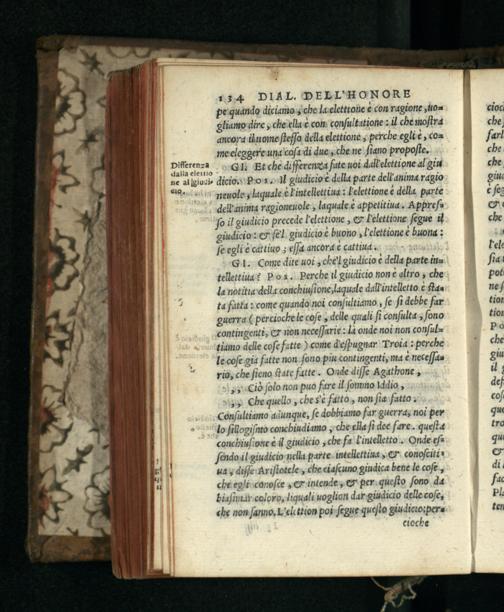 134 DIAL. DELL'HONORE
pe quando diciamo, che la elettione è con ragione, uo-
gliamo dire, che ella è con consultatione: il che mostra
ancora il nome stesso della elettione, perche egli è, co-
me eleggere una cosa di due, che ne siano proposte.
Differenza
dalla elettio
ne al giudi-
cio.
GI. Et che differenza fate uoi dall'elettione al giu
dicio. Pos. Il giudicio è della parte dell'anima ragio
neuole, laquale è l'intellettiua: l'elettione è della parte
dell'anima ragioneuole, laquale è appetitiua. Appres-
so il giudicio precede l'elettione, & l'elettione segue il
giudicio: & se'l giudicio è buono, l'elettione è buona:
se egli è cattiuo; essa ancora è cattiua.
GI. Come dite uoi, che'l giudicio è della parte in-
tellettiua? Pos. Perche il giudicio non è altro, che
la notitia della conchiusione, laquale dall'intelletto è sta-
ta fatta: come quando noi consultiamo, se si debbe far
guerra (percioche le cose, delle quali si consulta, sono
contingenti, & non necessarie: là onde noi non consul-
tiamo delle cose fatte) come d'espugnar Troia: perche
le cose gia fatte non sono piu contingenti, ma è necessa-
rio, che sieno state fatte. Onde disse Agathone,
,, Ciò solo non puo fare il sommo Iddio,
,, Che quello, che s'è fatto, non sia fatto.
Consultiamo adunque, se dobbiamo far guerra, noi per
lo sillogismo conchiudiamo, che ella si dee fare. questa
conchiusione è il giudicio, che fa l'intelletto. Onde es-
sendo il giudicio nella parte intellettiua, & conosciti-
ua, disse Aristotele, che ciascuno giudica bene le cose,
che egli conosce, & intende, & per questo sono da
biasimar coloro, liquali uoglion dar giudicio delle cose,
che non sanno. L'elettion poi segue questo giudicio: per-
cioche